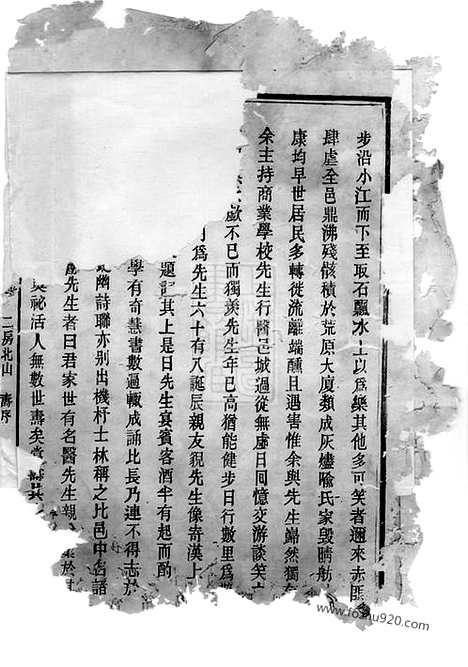 步沿小江而下至取石飄水上以爲樂其他多可笑者邇來赤匪
肆虐全邑鼎沸殘骸積於荒原大廈類成灰燼隃氏家毀晴舫
康均早世居民多轉徙流離端醺且遇害惟余與先生巋然獨
余主持商業學校先生行醫邑城過從無虛日回憶交游談笑
歔不已而獨羨先生年已高猶能健步日行數里爲
月爲先生六十有八誕辰親友貌先生像寄漢上
題記其上是日先生宴賓客酒半有起而酌
學有奇慧書數過輒成誦比長乃連不得志於
幽詩聯亦别出機杼士林稱之比邑中名諸
先生者曰君家世有名醫先生親
奧祕活人無數世壽矣
二房北山 壽序
www.fozhu920.com